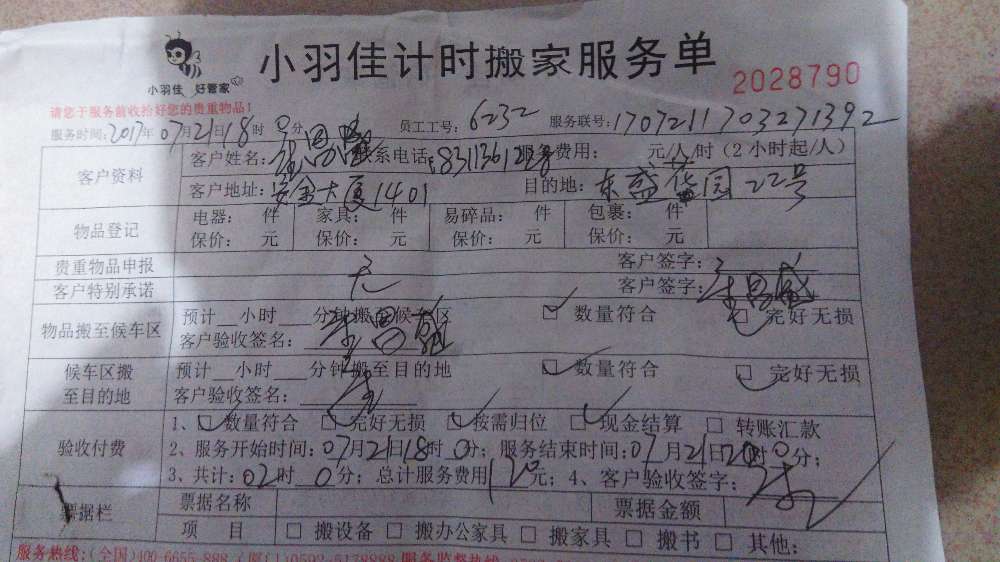 小羽佳计时搬家服务单
小羽佳 好管家
2028790
请您于服务前收拾好您的贵重物品!
服务时间:2017年07月21日18时0分 员工工号:6232 服务联号:1707211703271392
客户资料 客户姓名: 联系电话: 服务费用: 元/人/时(2小时起/人)
客户地址:安金大厦1401 目的地:东盛花园22号
物品登记 电器: 件 家具: 件 易碎品: 件 包裹: 件
保价: 元 保价: 元 保价: 元 保价: 元
贵重物品申报 无 客户签字:
客户特别承诺 客户签字:
物品搬至候车区 预计__小时___分钟搬至候车区 ☑数量符合 ☑完好无损
客户验收签名:
候车区搬至目的地 预计__小时___分钟搬至目的地 ☑数量符合 ☑完好无损
客户验收签名:
验收付费 1、☑数量符合 ☑完好无损 ☑按需归位 ☑现金结算 □转账汇款
2、服务开始时间:07月21日18时0分;服务结束时间:07月21日20时0分;
3、共计:02时0分;总计服务费用120元;4、客户验收签字:
票据栏 票据名称 票据金额
项 目 □搬设备 □搬办公家具 □搬家具 □搬书 □其他:
服务热线:(全国)400-6655-888